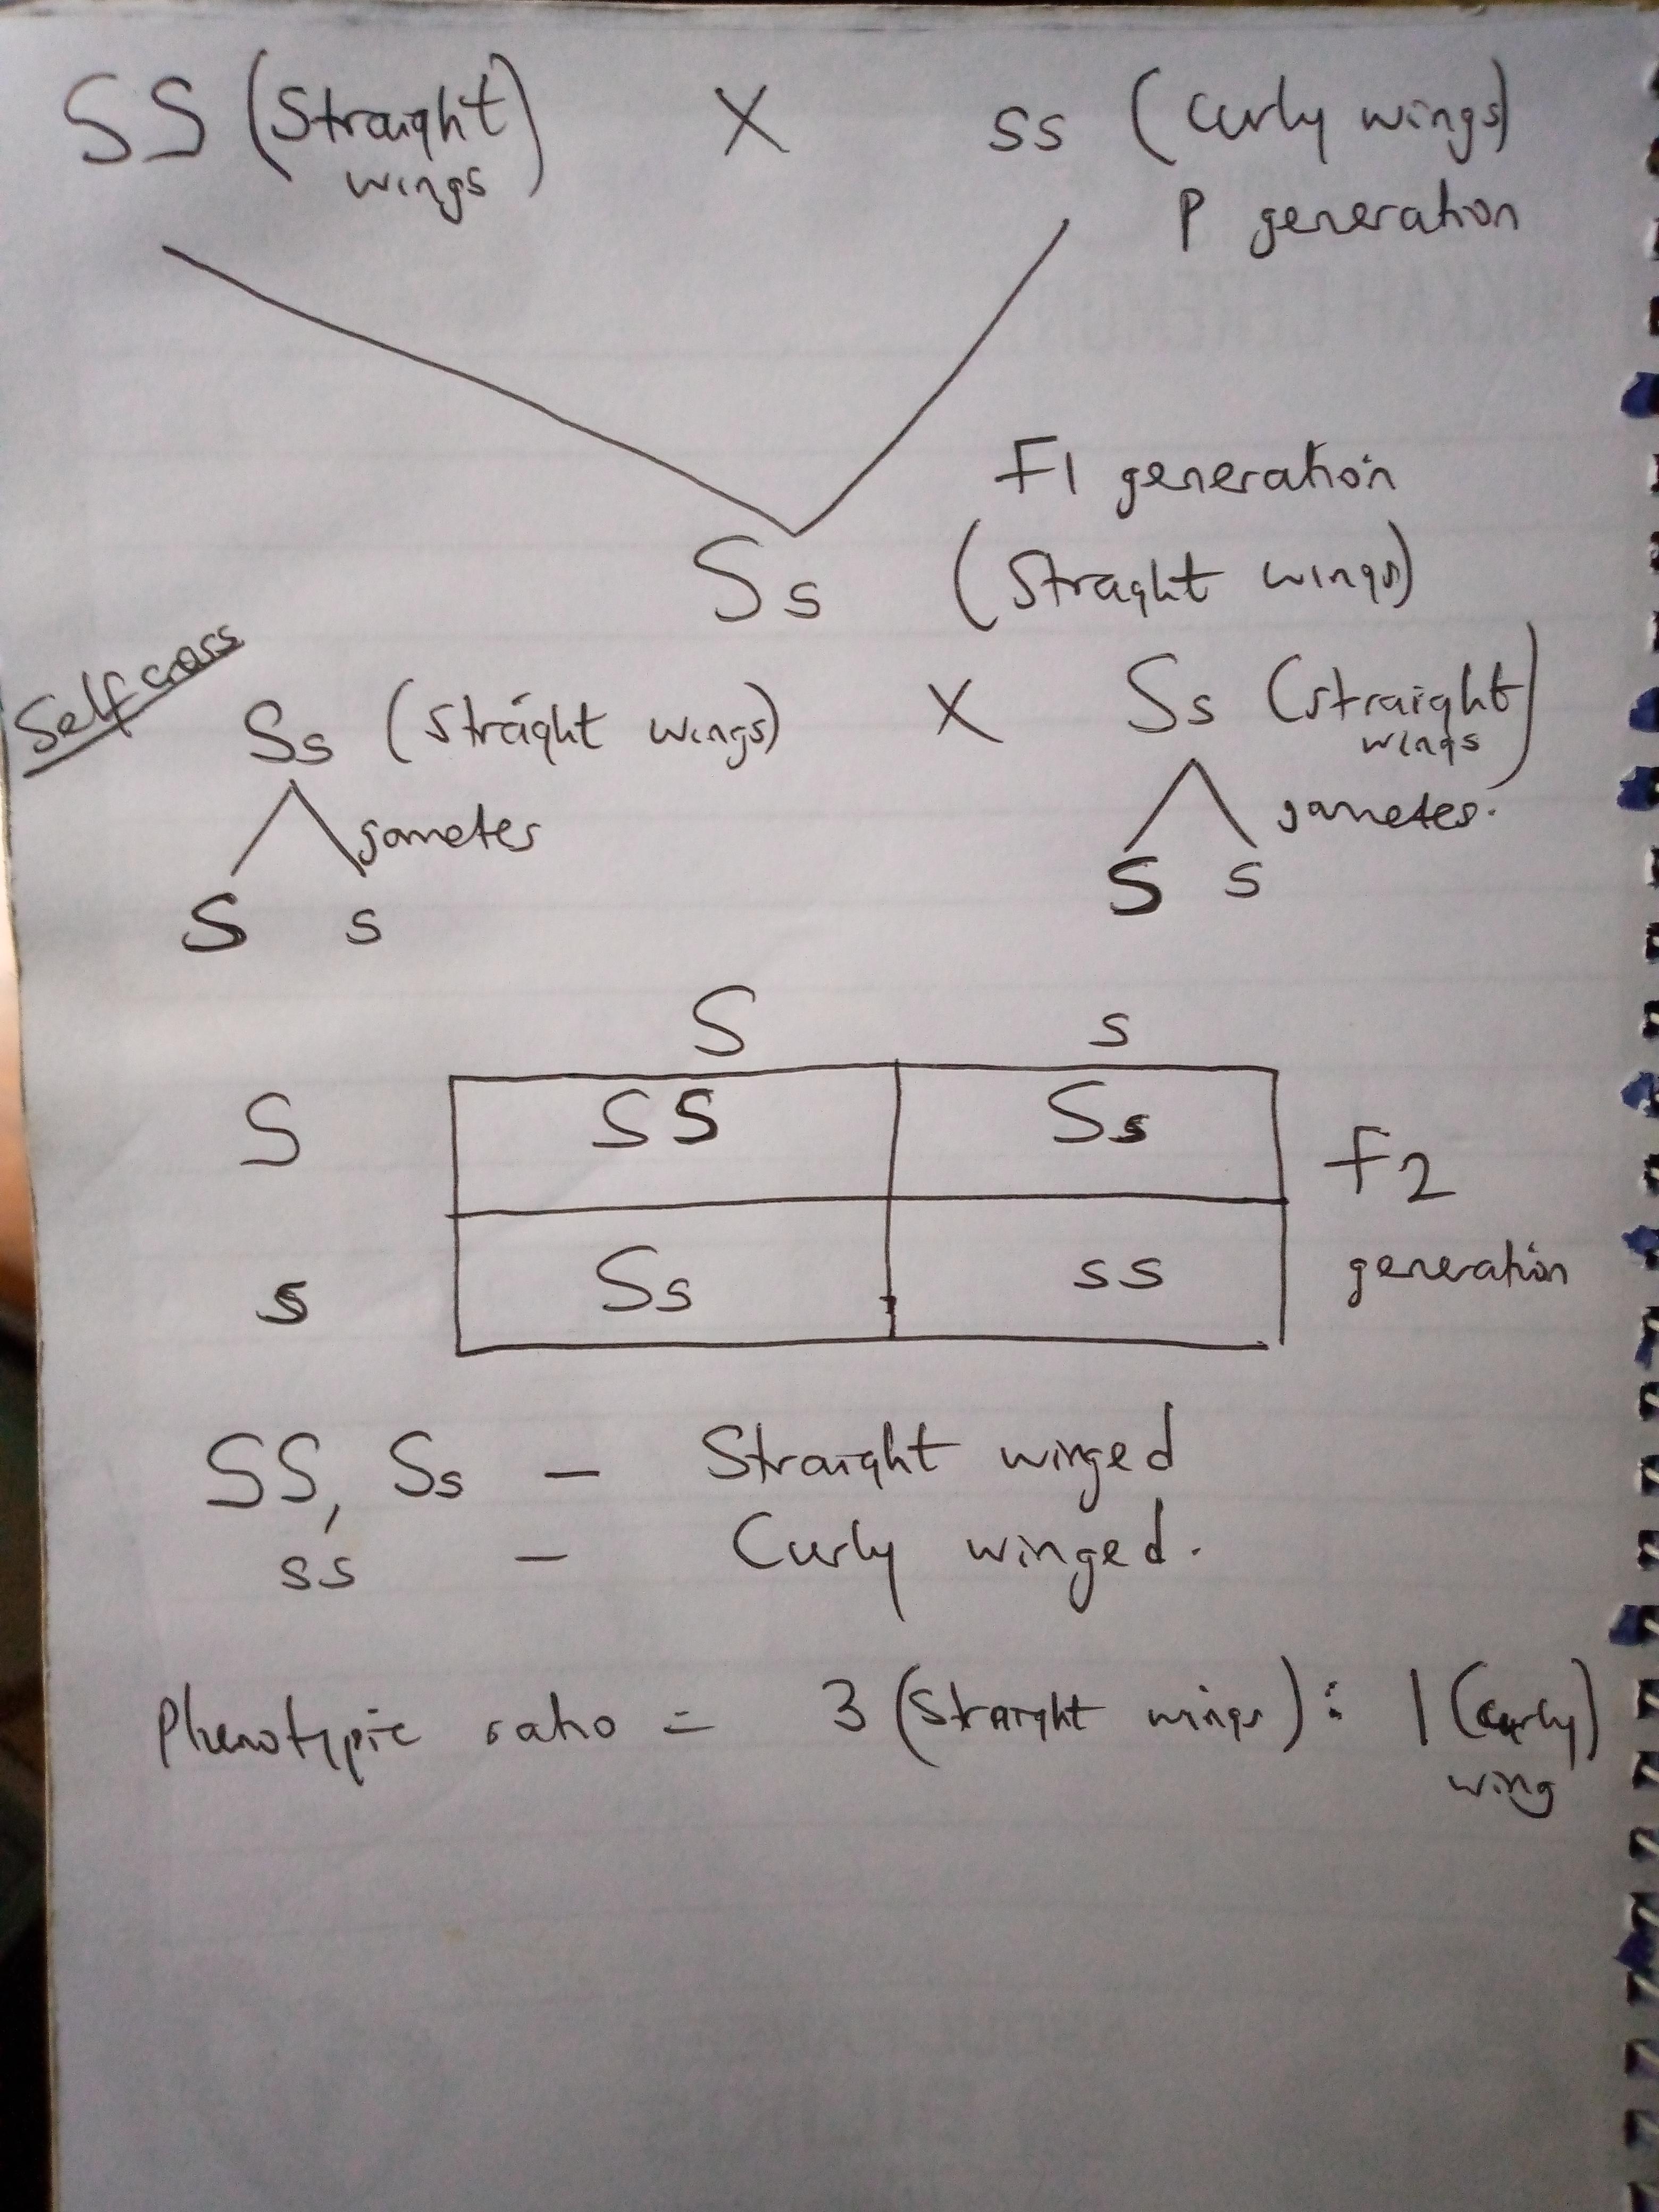 SS (Straight wings) X ss (Curly wings)
P generation
F1 generation
Ss (Straght wings)
Self cross
Ss (Straight wings) X Ss (straight wings)
gametes gametes.
S s S s
S s
S SS Ss
F2
s Ss ss generation
SS, Ss – Straight winged
ss – Curly winged.
Phenotypic ratio = 3 (Straight wings) : 1 (curly)
wing